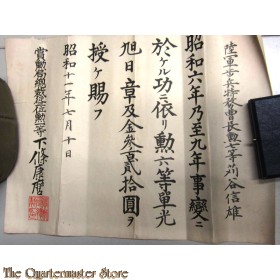 陸軍歩兵特務曹長勲七等苅谷信雄
昭和六年乃至九年事變ニ
於ケル功ニ依リ勲六等單光
旭日章及金參百貳拾圓ヲ
授ケ賜フ
昭和十一年七月十日
賞勲局總裁勲一等下條康麿
The Quartermaster Store